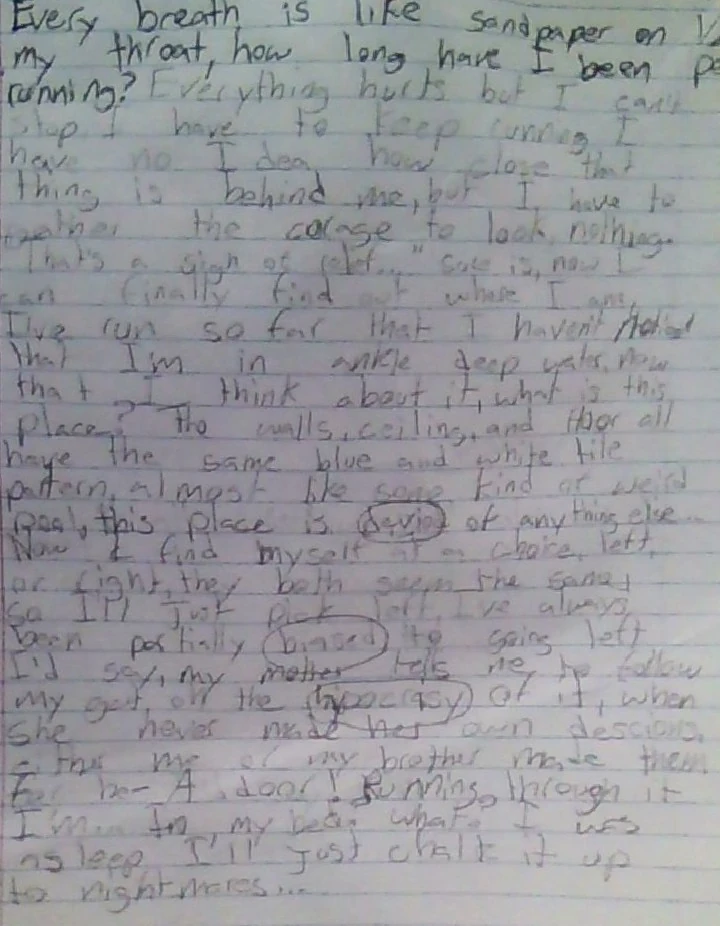 Every breath is like sandpaper on
my throat, how long have I been
running? Everything hurts but I can't
stop I have to keep runneg, I
have no I dea how close that
thing is behind me, but I have to
geather the corage to look, nothing.
That's a sigh of relef..." is, now I
can finally find out where I am,
I've run so far that I haven't
that I'm in ankle deep water, now
that I think about it, what is this
place? The walls, ceiling, and floor all
have the same blue and white tile
pattern, almost like some kind of weird
pool, this place is devied of anything else...
Now I find myself at a choice, left,
or right, they both seem the same,
so I'll just pick left, I've always
been partially biased to going left
I'd say, my mother tells me to follow
my gut, oh the hypocrasy of it, when
she never made her own descions,
either me or my brother made them
for her- A door! Running through it
I'm.. In my bed, what I was
asleep I'll just chalk it up
to nightmares...